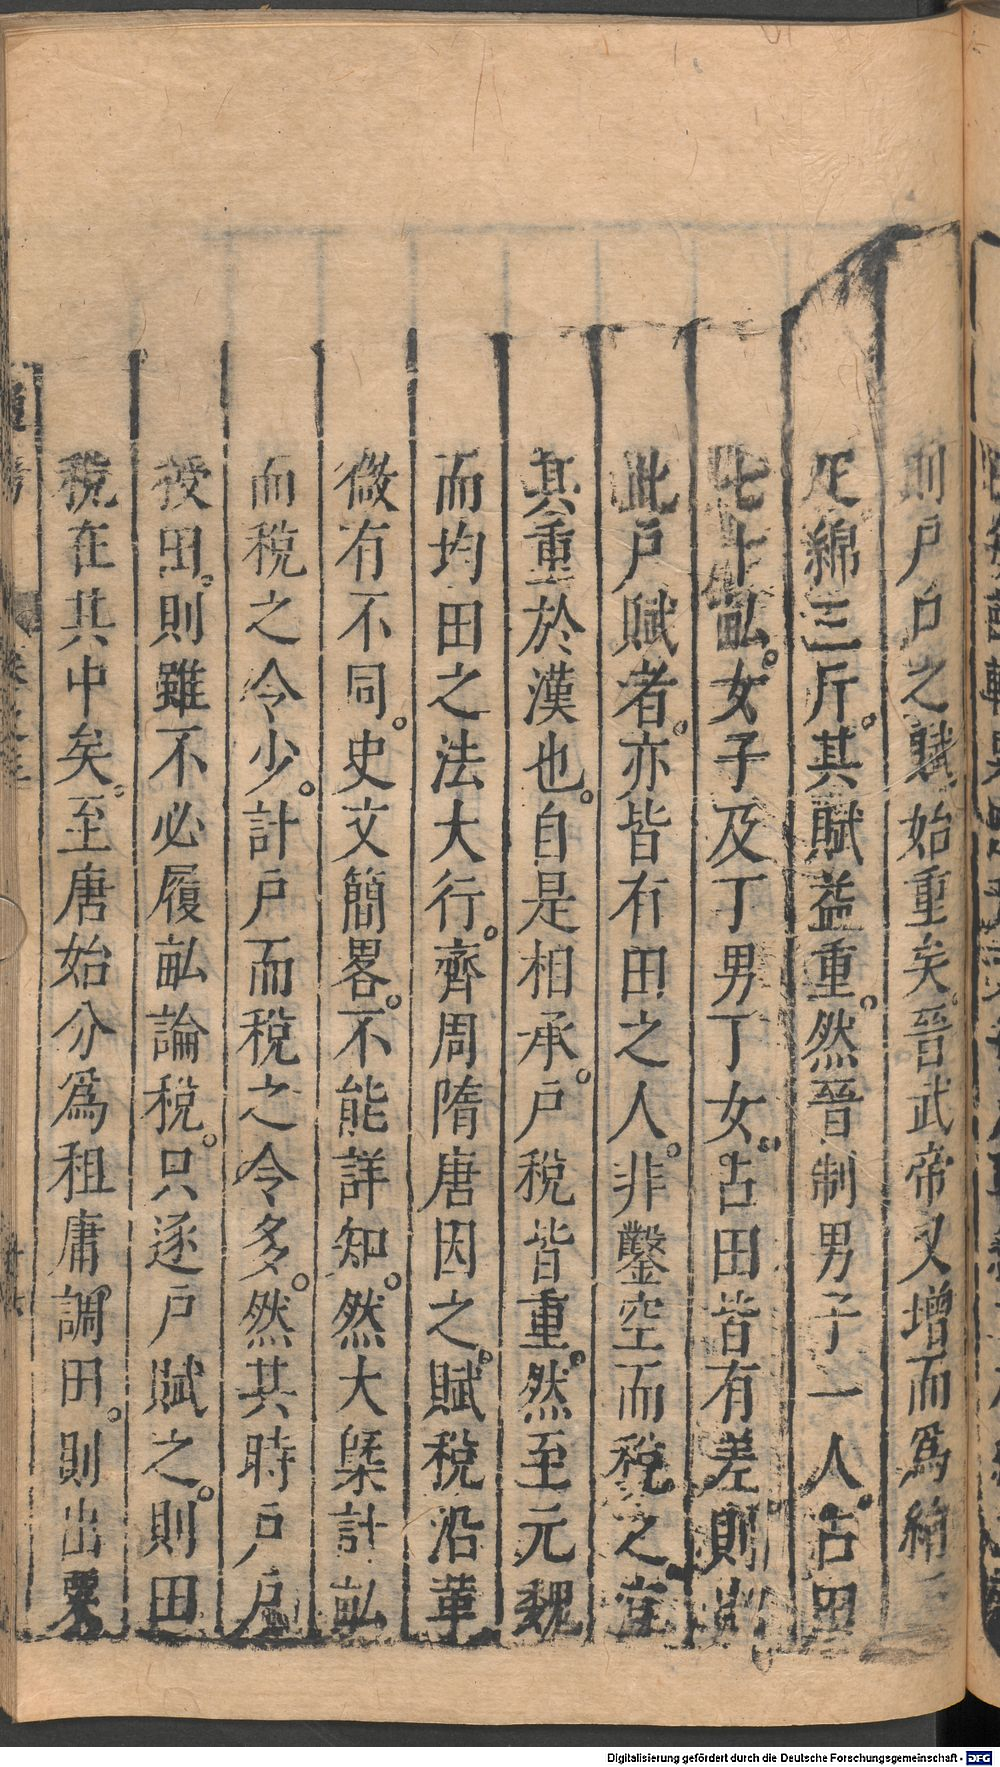 則戶口之賦始重矣。晉武帝又增而爲絹三
疋綿三斤。其賦益重。然晉制男子一人。占田
七十畆。女子及丁男丁女。占田皆有差。則出
此戶賦者。亦皆有田之人。非鑿空而稅之宜
其重於漢也。自是相承。戶稅皆重。然至元魏
而均田之法大行。齊周隋唐因之。賦稅沿革
微有不同。史文簡畧。不能詳知。然大槩計畆
而稅之令少。計戶而稅之令多。然其時戶戶
授田。則雖不必履畆論稅。只逐戶賦之。則田
稅在其中矣。至唐始分爲租庸調田。則出粟
Digitalisierung gefördert durch die Deutsche Forschungsgemeinschaft - DFG